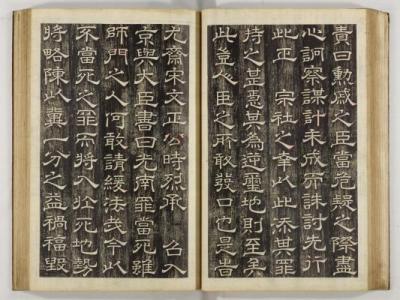 責曰勳戚之臣當危疑之際盡
心詗察謀計未成而誅討先行
此正 宗社之幸以此添其罪
持之甚急其爲逆璽地則至矣
此豈人臣之所敢發口也是旹
尤齋宋文正公時烈承 召入
京與大臣書曰光南罪當死雖
師門之人何敢請緩法哉今以
不當死之罪而將入於死地勢
將略陳以冀一分之益禍福毀